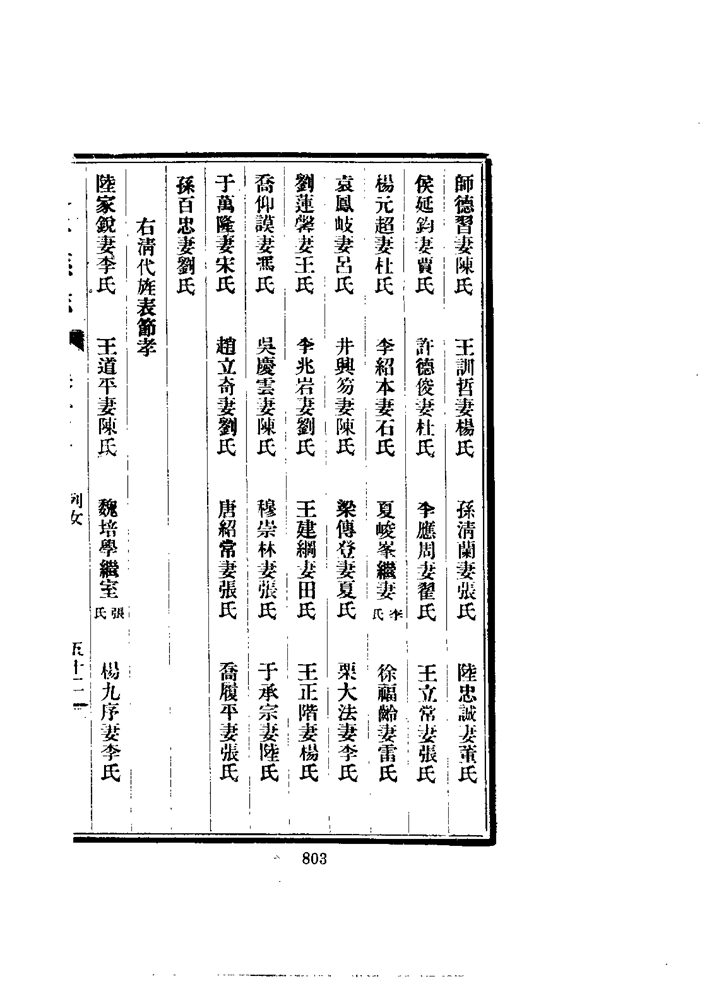 師德習妻陳氏　王訓哲妻楊氏　孫清蘭妻張氏　陸忠誠妻董氏
侯延鈞妻賈氏　許德俊妻杜氏　李應周妻翟氏　王立常妻張氏
楊元超妻杜氏　李紹本妻石氏　夏峻峯繼妻李氏　徐福齡妻雷氏
袁鳳岐妻呂氏　井興芴妻陳氏　梁傳登妻夏氏　栗大法妻李氏
劉蓮馨妻王氏　李兆岩妻劉氏　王建綱妻田氏　王正階妻楊氏
喬仰謨妻馮氏　吳慶雲妻陳氏　穆崇林妻張氏　于承宗妻陸氏
于萬隆妻宋氏　趙立奇妻劉氏　唐紹常妻張氏　喬履平妻張氏
孫百忠妻劉氏
右清代旌表節孝
陸家銳妻李氏　王道平妻陳氏　魏培學繼室張氏　楊九序妻李氏
列女　五十二
803